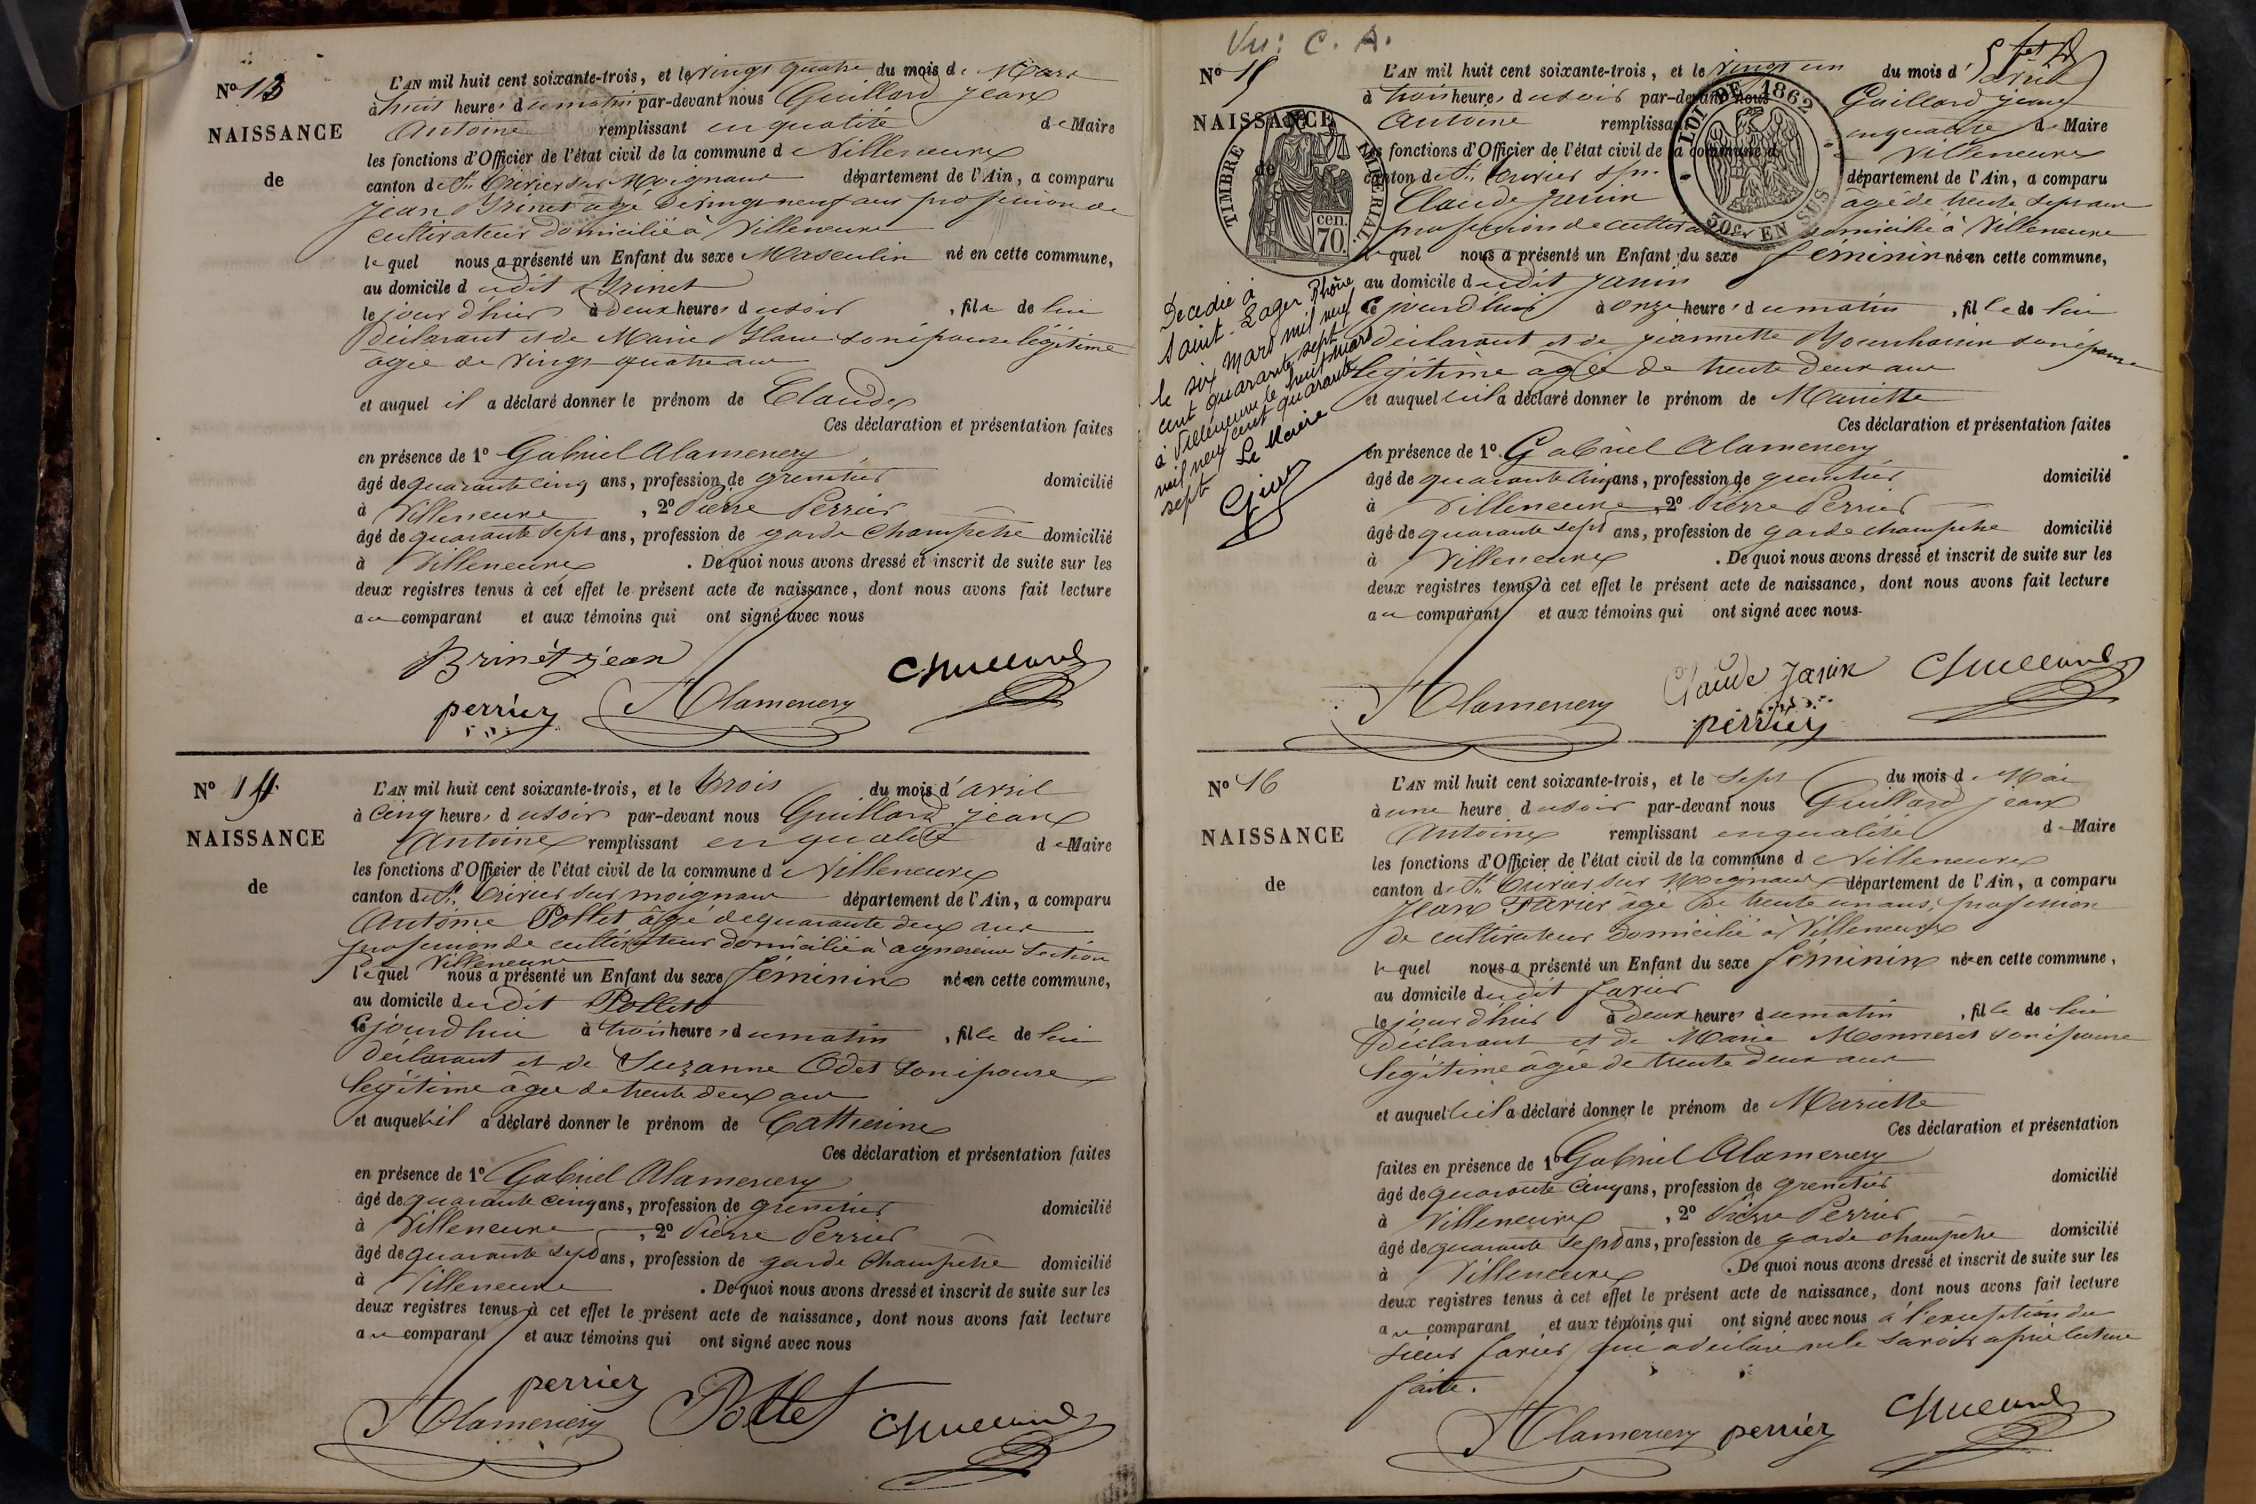 No 13
NAISSANCE
de
L'AN mil huit cent soixante-trois, et le vingt quatre du mois de Mars
à huit heures du matin par-devant nous Guillard jean
Antoine remplissant en qualité de Maire
les fonctions d'Officier de l'état civil de la commune de Villeneuve
canton de St. trivier sur Moignans département de l'Ain, a comparu
jean Brinet age de vingt neuf ans profession de
cultivateur domicilié à Villeneuve
lequel nous a présenté un Enfant du sexe Masculin né en cette commune,
au domicile dudit Brinet
le jour d'hier à deux heures du soir, fils de lui
déclarant et de Marie son épouse légitime
agée de vingt quatre ans
et auquel il a déclaré donner le prénom de Claude
Ces déclaration et présentation faites
en présence de 1o Gabriel Alamercery
âgé de quarante cinq ans, profession de grenetier domicilié
à Villeneuve, 2o Pierre Perrier
âgé de quarante sept ans, profession de garde champetre domicilié
à Villeneuve. De quoi nous avons dressé et inscrit de suite sur les
deux registres tenus à cet effet le présent acte de naissance, dont nous avons fait lecture
au comparant et aux témoins qui ont signé avec nous
Brinet jean Guillard
perrier Alamercery
No 14
NAISSANCE
de
L'AN mil huit cent soixante-trois, et le trois du mois d'avril
à cinq heures du soir par-devant nous Guillard jean
Antoine remplissant en qualité de Maire
les fonctions d'Officier de l'état civil de la commune de Villeneuve
canton de St. trivier sur moignans département de l'Ain, a comparu
Antoine Pollet âgé de quarante deux ans
profession de cultivateur domicilié à agnereins section
Villeneuve
lequel nous a présenté un Enfant du sexe féminin né en cette commune,
au domicile dudit Pollet
ce jourd'hui à trois heures du matin, fille de lui
déclarant et de Suzanne Odet son épouse
légitime âgée de trente deux ans
et auquel il a déclaré donner le prénom de Catherine
Ces déclaration et présentation faites
en présence de 1o Gabriel Alamercery
âgé de quarante cinq ans, profession de grenetier domicilié
à Villeneuve, 2o Pierre Perrier
âgé de quarante sept ans, profession de garde champetre domicilié
à Villeneuve. De quoi nous avons dressé et inscrit de suite sur les
deux registres tenus à cet effet le présent acte de naissance, dont nous avons fait lecture
au comparant et aux témoins qui ont signé avec nous
perrier
Alamercery Pollet Guillard
Vu: C. A.
No 15
NAISSANCE
de
TIMBRE IMPERIAL
70 cen.
LOI DE 1862
50c. EN SUS
L'AN mil huit cent soixante-trois, et le vingt un du mois d'avril
à trois heures du soir par-devant nous Guillard jean
Antoine remplissant en qualité de Maire
les fonctions d'Officier de l'état civil de la commune de Villeneuve
canton de St. trivier s/m département de l'Ain, a comparu
Claude Janin âgé de trente sept ans
profession de cultivateur domicilié à Villeneuve
lequel nous a présenté un Enfant du sexe féminin né en cette commune,
au domicile dudit Janin
ce jourd'hui à onze heures du matin, fille de lui
déclarant et de jeannette son épouse
légitime agée de trente deux ans
et auquel il a déclaré donner le prénom de Mariette
Ces déclaration et présentation faites
en présence de 1o. Gabriel Alamercery
âgé de quarante cinq ans, profession de grenetier domicilié
à Villeneuve, 2o Pierre Perrier
âgé de quarante sept ans, profession de garde champetre domicilié
à Villeneuve. De quoi nous avons dressé et inscrit de suite sur les
deux registres tenus à cet effet le présent acte de naissance, dont nous avons fait lecture
au comparant et aux témoins qui ont signé avec nous
Alamercery Claude Janin Guillard
perrier
Décédée à
Saint Lager Rhône
le six mars mil neuf
cent quarante sept
à Villeneuve le huit mars
mil neuf cent quarante
sept Le Maire
No 16
NAISSANCE
de
L'AN mil huit cent soixante-trois, et le sept du mois de Mai
à une heure du soir par-devant nous Guillard jean
Antoine remplissant en qualité de Maire
les fonctions d'Officier de l'état civil de la commune de Villeneuve
canton de St. trivier sur Moignans département de l'Ain, a comparu
Jean Farier age de trente un ans, profession
de cultivateur domicilié à Villeneuve
lequel nous a présenté un Enfant du sexe féminin né en cette commune,
au domicile dudit farier
le jour d'hier à deux heures du matin, fille de lui
déclarant et de Marie Monneret son épouse
légitime âgée de trente deux ans
et auquel il a déclaré donner le prénom de Mariette
Ces déclaration et présentation
faites en présence de 1o Gabriel Alamercery
âgé de quarante cinq ans, profession de grenetier domicilié
à Villeneuve, 2o Pierre Perrier
âgé de quarante sept ans, profession de garde champetre domicilié
à Villeneuve. De quoi nous avons dressé et inscrit de suite sur les
deux registres tenus à cet effet le présent acte de naissance, dont nous avons fait lecture
au comparant et aux témoins qui ont signé avec nous à l'exception du
sieur farier qui a déclaré ne le savoir après lecture
faite.
Alamercery perrier Guillard